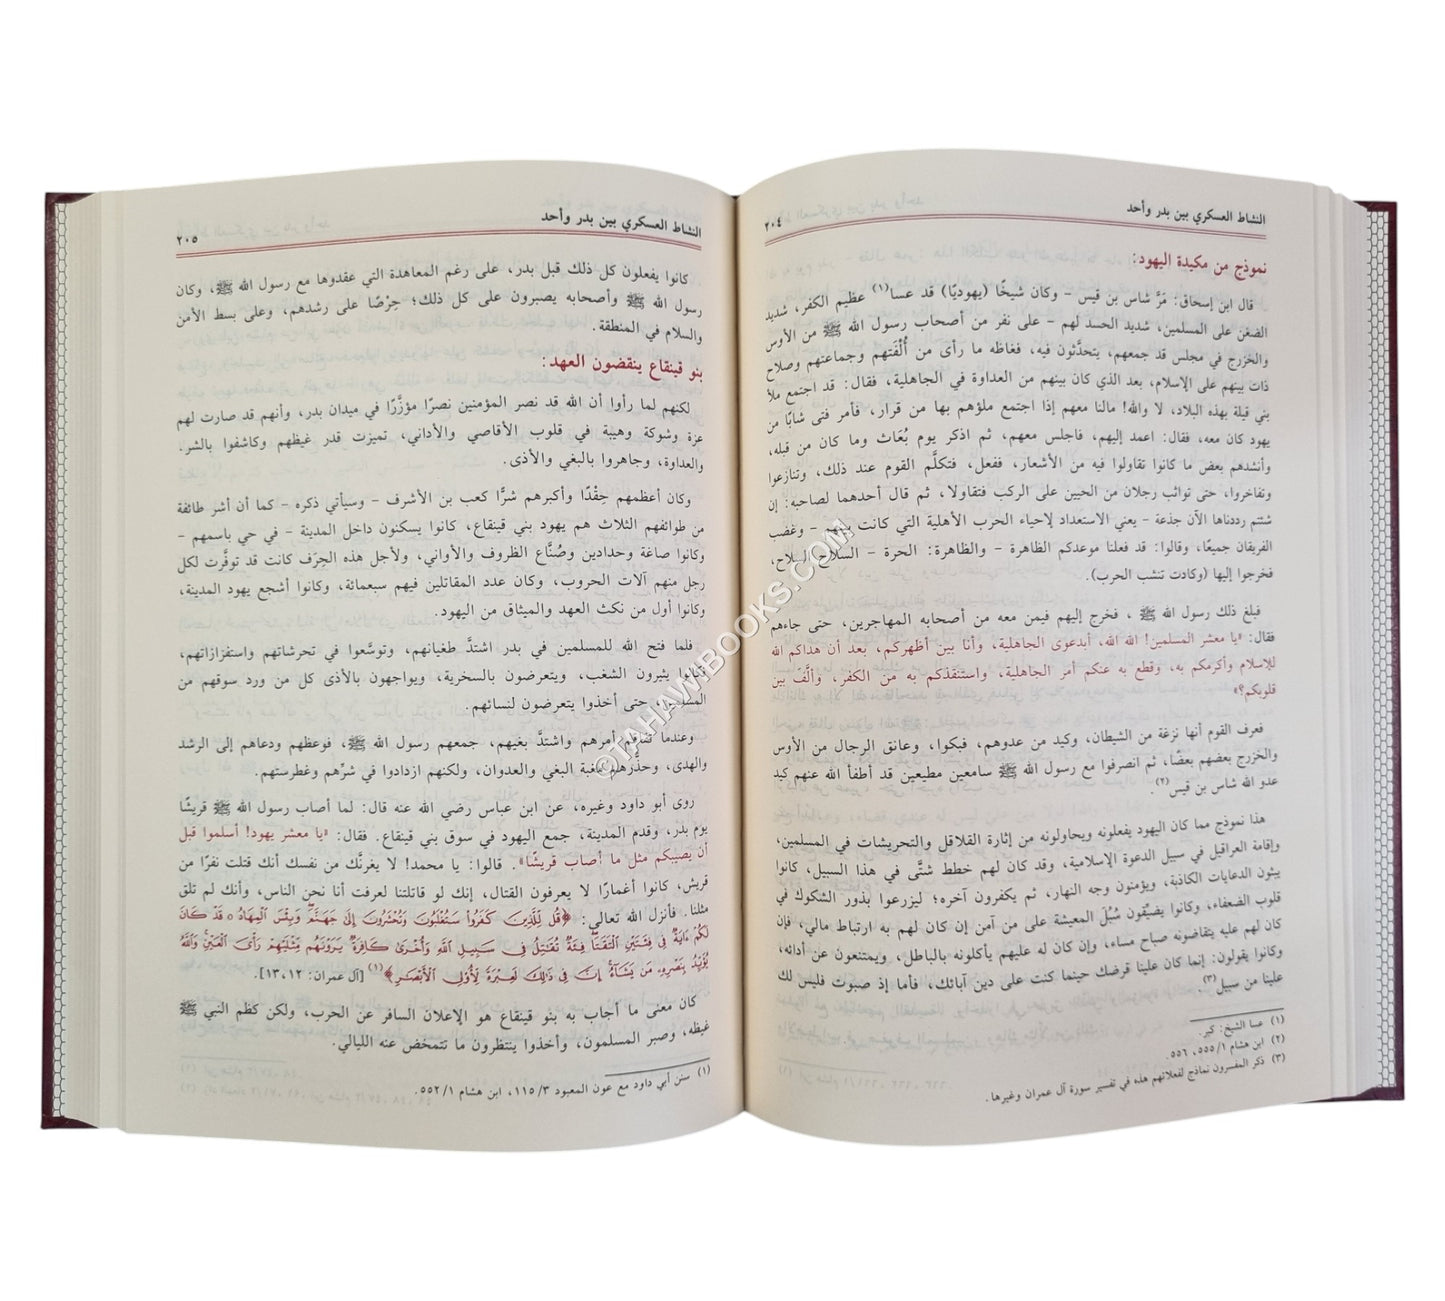 النشاط العسكري بين بدر وأحد
٢٠٤
نموذج من مكيدة اليهود:
قال ابن إسحاق: مَرَّ شاس بن قيس – وكان شيخًا (يهوديًا) قد عسا(١) عظيم الكفر، شديد
الضغن على المسلمين، شديد الحسد لهم – على نفر من أصحاب رسول الله ﷺ من الأوس
والخزرج في مجلس قد جمعهم، يتحدَّثون فيه، فغاظه ما رأى من أُلْفَتهم وجماعتهم وصلاح
ذات بينهم على الإسلام، بعد الذي كان بينهم من العداوة في الجاهلية، فقال: قد اجتمع ملأ
بني قيلة بهذه البلاد، لا والله! مالنا معهم إذا اجتمع ملؤهم بها من قرار، فأمر فتى شابًا من
يهود كان معه، فقال: اعمد إليهم، فاجلس معهم، ثم اذكر يوم بُعَاث وما كان من قبله،
وأنشدهم بعض ما كانوا تقاولوا فيه من الأشعار، ففعل، فتكلَّم القوم عند ذلك، وتنازعوا
وتفاخروا، حتى تواثب رجلان من الحيين على الركب فتقاولا، ثم قال أحدهما لصاحبه: إن
شئتم رددناها الآن جذعة – يعني الاستعداد لإحياء الحرب الأهلية التي كانت بينهم – وغضب
الفريقان جميعًا، وقالوا: قد فعلنا موعدكم الظاهرة – والظاهرة: الحرة – السلاح السلاح،
فخرجوا إليها (وكادت تنشب الحرب).
فبلغ ذلك رسول الله ﷺ ، فخرج إليهم فيمن معه من أصحابه المهاجرين، حتى جاءهم
فقال: «يا معشر المسلمين! الله الله، أبدعوى الجاهلية، وأنا بين أظهركم، بعد أن هداكم الله
للإسلام وأكرمكم به، وقطع به عنكم أمر الجاهلية، واستنقذكم به من الكفر، وألَّفَ بين
قلوبكم؟»
فعرف القوم أنها نزغة من الشيطان، وكيد من عدوهم، فبكوا، وعانق الرجال من الأوس
والخزرج بعضهم بعضًا، ثم انصرفوا مع رسول الله ﷺ سامعين مطيعين قد أطفأ الله عنهم كيد
عدو الله شاس بن قيس(٢).
هذا نموذج مما كان اليهود يفعلونه ويحاولونه من إثارة القلاقل والتحريشات في المسلمين،
وإقامة العراقيل في سبيل الدعوة الإسلامية، وقد كان لهم خطط شتَّى في هذا السبيل، كانوا
يبثون الدعايات الكاذبة، ويؤمنون وجه النهار، ثم يكفرون آخره؛ ليزرعوا بذور الشكوك في
قلوب الضعفاء، وكانوا يضيِّقون سُبُلَ المعيشة على من آمن إن كان لهم به ارتباط مالي، فإن
كان لهم عليه يتقاضونه صباح مساء، وإن كان له عليهم يأكلونه بالباطل، ويمتنعون عن أدائه،
وكانوا يقولون: إنما كان علينا قرضك حينما كنت على دين آبائك، فأما إذ صبوت فليس لك
علينا من سبيل(٣).
(١) عسا الشيخ: كبر.
(٢) ابن هشام ٥٥٥/١، ٥٥٦.
(٣) ذكر المفسرون نماذج لفعلاتهم هذه في تفسير سورة آل عمران وغيرها.
النشاط العسكري بين بدر وأحد
٢٠٥
كانوا يفعلون كل ذلك قبل بدر، على رغم المعاهدة التي عقدوها مع رسول الله ﷺ، وكان
رسول الله ﷺ وأصحابه يصبرون على كل ذلك؛ حِرْصًا على رشدهم، وعلى بسط الأمن
والسلام في المنطقة.
بنو قينقاع ينقضون العهد:
لكنهم لما رأوا أن الله قد نصر المؤمنين نصرًا مؤزَّرًا في ميدان بدر، وأنهم قد صارت لهم
عزة وشوكة وهيبة في قلوب الأقاصي والأداني، تميزت قدر غيظهم وكاشفوا بالشر،
والعداوة، وجاهروا بالبغي والأذى.
وكان أعظمهم حِقْدًا وأكبرهم شرًّا كعب بن الأشرف – وسيأتي ذكره – كما أن أشر طائفة
من طوائفهم الثلاث هم يهود بني قينقاع، كانوا يسكنون داخل المدينة – في حي باسمهم –
وكانوا صاغة وحدادين وصُنَّاع الظروف والأواني، ولأجل هذه الحِرَف كانت قد توفَّرت لكل
رجل منهم آلات الحروب، وكان عدد المقاتلين فيهم سبعمائة، وكانوا أشجع يهود المدينة،
وكانوا أول من نكث العهد والميثاق من اليهود.
فلما فتح الله للمسلمين في بدر اشتدَّ طغيانهم، وتوسَّعوا في تحرشاتهم واستفزازاتهم،
فكانوا يثيرون الشغب، ويتعرضون بالسخرية، ويواجهون بالأذى كل من ورد سوقهم من
المسلمين، حتى أخذوا يتعرضون لنسائهم.
وعندما تفاقم أمرهم واشتدَّ بغيهم، جمعهم رسول الله ﷺ، فوعظهم ودعاهم إلى الرشد
والهدى، وحذَّرهم مغبة البغي والعدوان، ولكنهم ازدادوا في شرِّهم وغطرستهم.
روى أبو داود وغيره، عن ابن عباس رضي الله عنه قال: لما أصاب رسول الله ﷺ قريشًا
يوم بدر، وقدم المدينة، جمع اليهود في سوق بني قينقاع. فقال: «يا معشر يهود! أسلموا قبل
أن يصيبكم مثل ما أصاب قريشًا». قالوا: يا محمد! لا يغرنَّك من نفسك أنك قتلت نفرًا من
قريش، كانوا أغمارًا لا يعرفون القتال، إنك لو قاتلتنا لعرفت أنا نحن الناس، وأنك لم تلق
مثلنا. فأنزل الله تعالى: ﴿قُل لِّلَّذِينَ كَفَرُوا۟ سَتُغْلَبُونَ وَتُحْشَرُونَ إِلَىٰ جَهَنَّمَ ۚ وَبِئْسَ ٱلْمِهَادُ ○ قَدْ كَانَ
لَكُمْ ءَايَةٌ فِى فِئَتَيْنِ ٱلْتَقَتَا ۖ فِئَةٌ تُقَـٰتِلُ فِى سَبِيلِ ٱللَّهِ وَأُخْرَىٰ كَافِرَةٌ يَرَوْنَهُم مِّثْلَيْهِمْ رَأْىَ ٱلْعَيْنِ ۚ وَٱللَّهُ
يُؤَيِّدُ بِنَصْرِهِۦ مَن يَشَآءُ ۗ إِنَّ فِى ذَٰلِكَ لَعِبْرَةً لِّأُو۟لِى ٱلْأَبْصَـٰرِ﴾(١) [آل عمران: ١٢، ١٣].
كان معنى ما أجاب به بنو قينقاع هو الإعلان السافر عن الحرب، ولكن كظم النبي ﷺ
غيظه، وصبر المسلمون، وأخذوا ينتظرون ما تتمخض عنه الليالي.
(١) سنن أبي داود مع عون المعبود ١١٥/٣، ابن هشام ٥٥٢/١.
©TAHAWIBOOKS.COM